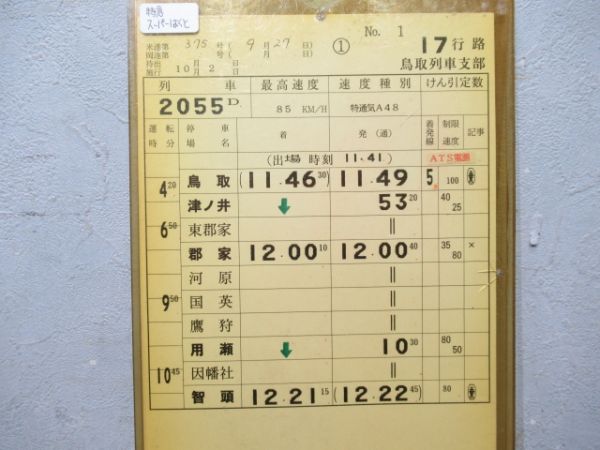 特急
スーパーはくと
米達第 375 号(9月27日)
岡達第 号(月 日)
待出
施行 10月2日
No. 1
①
17行路
鳥取列車支部
列車 最高速度 速度種別 けん引定数
2055D. 85 KM/H 特通気A48
運転時分 停車場名 着 発(通) 着発線 制限速度 記事
(出場時刻 11.41) ATS電源
4 20 鳥取 (11.46 30) 11.49 5. 100
津ノ井 ↓ 53 20 40 25
6 50 東郡家 ||
郡家 12.00 10 12.00 40 35 80 ×
河原 ||
9 50 国英 ||
鷹狩 ||
用瀬 ↓ 10 30 80 50
10 45 因幡社 ||
智頭 12.21 15 (12.22 45) 80